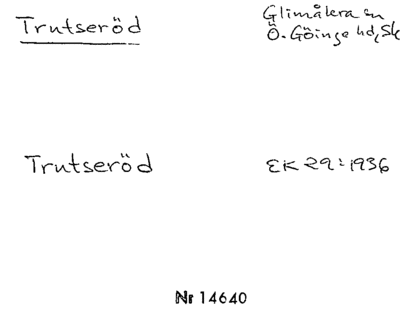 Trutseröd
Glimåkra sn
Ö. Göinge hd, Sk
Trutseröd
EK 29:1936
Nr 14640